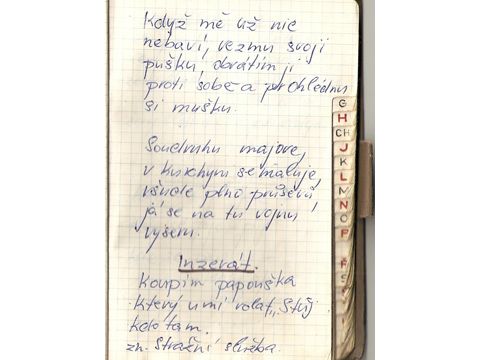 Když mě už nic
nebaví, vezmu svoji
pušku, obrátím ji
proti sobě a prohlédnu
si mušku.
Soudruhu majore,
v Kuchyni se maluje,
všude plno průserů,
já se na tu vojnu
vyseru.
Inzerát.
Koupím papouška
který umí volat „Stůj
kdo tam.
zn. Strážní služba.
G
H
CH
J
K
L
M
N
O
P
Ř
S